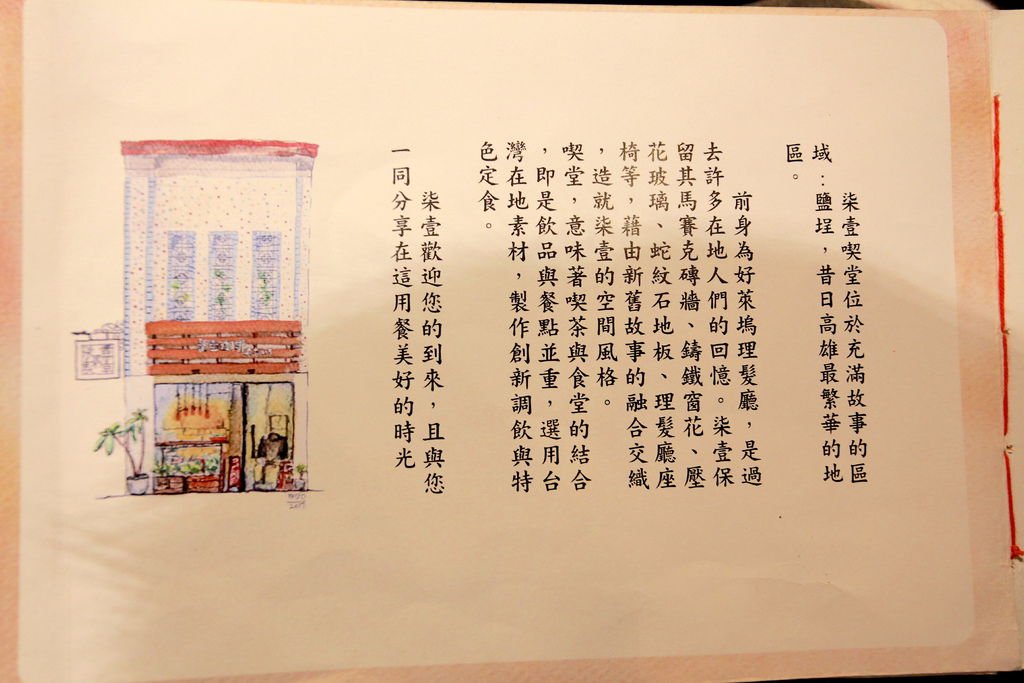 柒壹喫堂位於充滿故事的區
域：鹽埕，昔日高雄最繁華的地
區。
前身為好萊塢理髮廳，是過
去許多在地人們的回憶。柒壹保
留其馬賽克磚牆、鑄鐵窗花、壓
花玻璃、蛇紋石地板、理髮廳座
椅等，藉由新舊故事的融合交織
，造就柒壹的空間風格。
喫堂，意味著喫茶與食堂的結合
，即是飲品與餐點並重，選用台
灣在地素材，製作創新調飲與特
色定食。
柒壹歡迎您的到來，且與您
一同分享在這用餐美好的時光